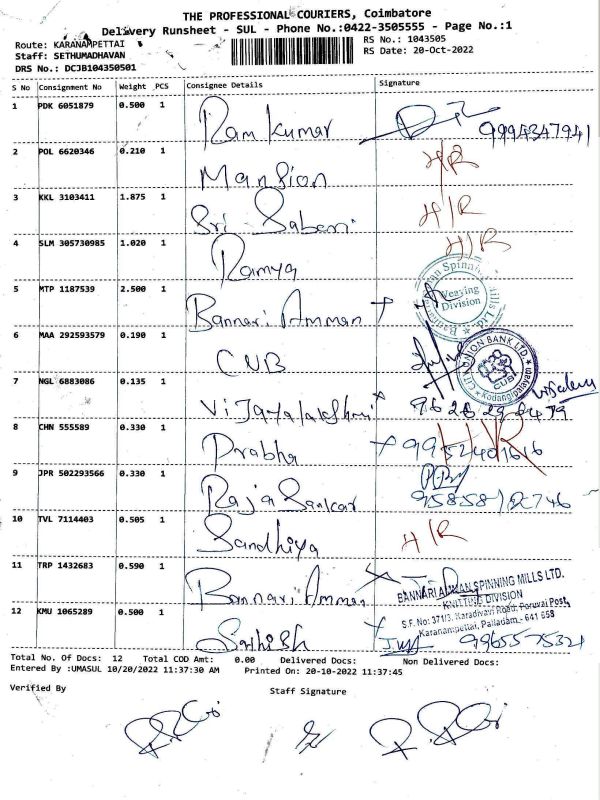 THE PROFESSIONAL COURIERS, Coimbatore
Delivery Runsheet - SUL - Phone No.:0422-3505555 - Page No.:1
Route: KARANAMPETTAI
RS No.: 1043505
Staff: SETHUMADHAVAN
RS Date: 20-Oct-2022
DRS No.: DCJB104350501
S No Consignment No Weight PCS Consignee Details Signature
1 PDK 6051879 0.500 1 Ram Kumar 9994347941
2 POL 6620346 0.210 1 Mansion H/R
3 KKL 3103411 1.875 1 Sri Sabari H/R
4 SLM 305730985 1.020 1 Ramya H/R
5 MTP 1187539 2.500 1 Bannari Amman
Weaving Division
6 MAA 292593579 0.190 1 CUB
CITY UNION BANK LTD. CUB Kodangipalayam
7 NGL 6883086 0.135 1 Vijayalakshmi
8 CHN 555589 0.330 1 Prabha 9952401616 H/R
9 JPR 502293566 0.330 1 Raja Sankar
10 TVL 7114403 0.505 1 Sandhiya H/R
11 TRP 1432683 0.590 1 Bannari Amman
BANNARI AMMAN SPINNING MILLS LTD.
KNITTING DIVISION
S.F. No: 371/3, Karadivavi Road, Poruvai Post,
Karanampettai, Palladam - 641 658
12 KMU 1065289 0.500 1 Sathish 9965575321
Total No. Of Docs: 12 Total COD Amt: 0.00 Delivered Docs: Non Delivered Docs:
Entered By :UMASUL 10/20/2022 11:37:30 AM Printed On: 20-10-2022 11:37:45
Verified By Staff Signature